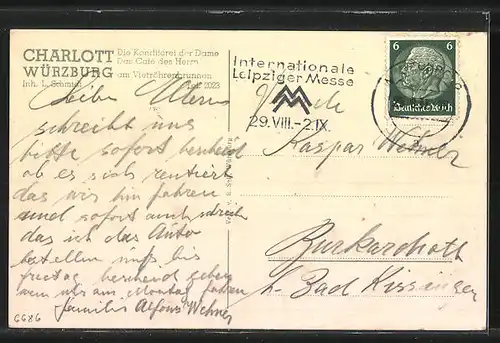 CHARLOTT
WÜRZBURG
Inh. L. Schmidt
Die Konditorei der Dame
Das Café des Herrn
am Vierröhrenbrunnen
Ruf 2023
Internationale
Leipziger Messe
29.VIII.-2.IX.
6 6
Deutsches Reich
Liebe Eltern
schreibt uns
bitte sofort bescheid
ob es sich rentiert
das wir hin fahren
und sofort
das ich das Auto
bestellen muß bis
freitag bescheid geben
wenn wir am Montag fahren
Familie Alfons Wehner
Kaspar Wehner
Burkardroth
b. Bad Kissingen
6686